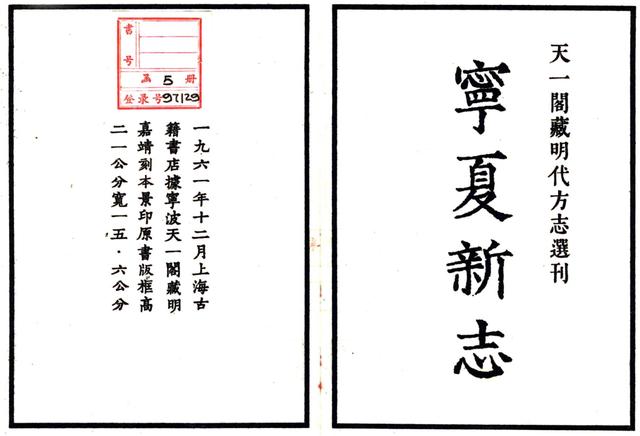 天一閣藏明代方志選刊
寧夏新志
書號
函 5 册
登录号 97129
一九六一年十二月上海古
籍書店據寧波天一閣藏明
嘉靖刻本景印原書版框高
二一公分寬一五·六公分